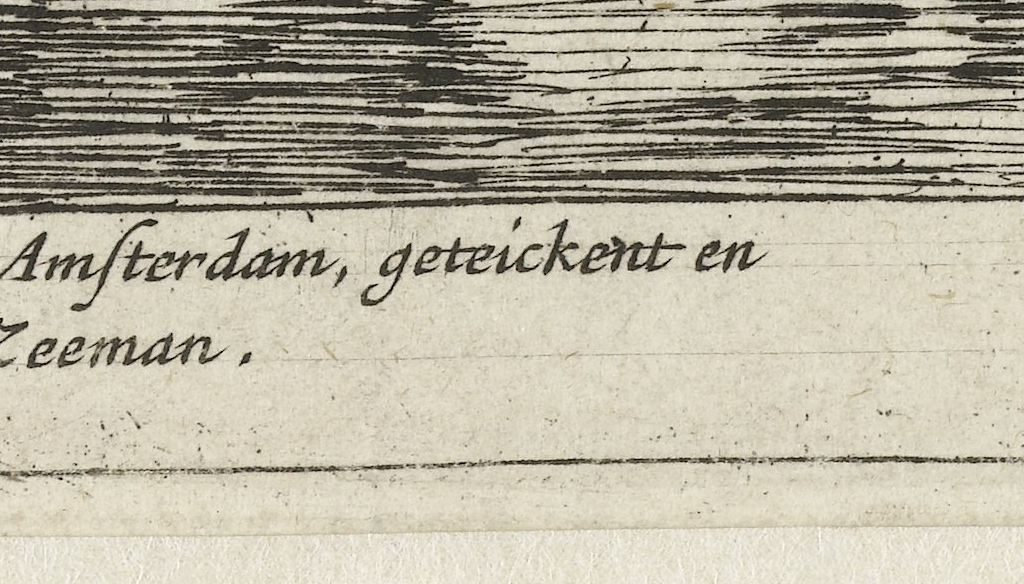 Amſterdam, geteickent en
Zeeman.